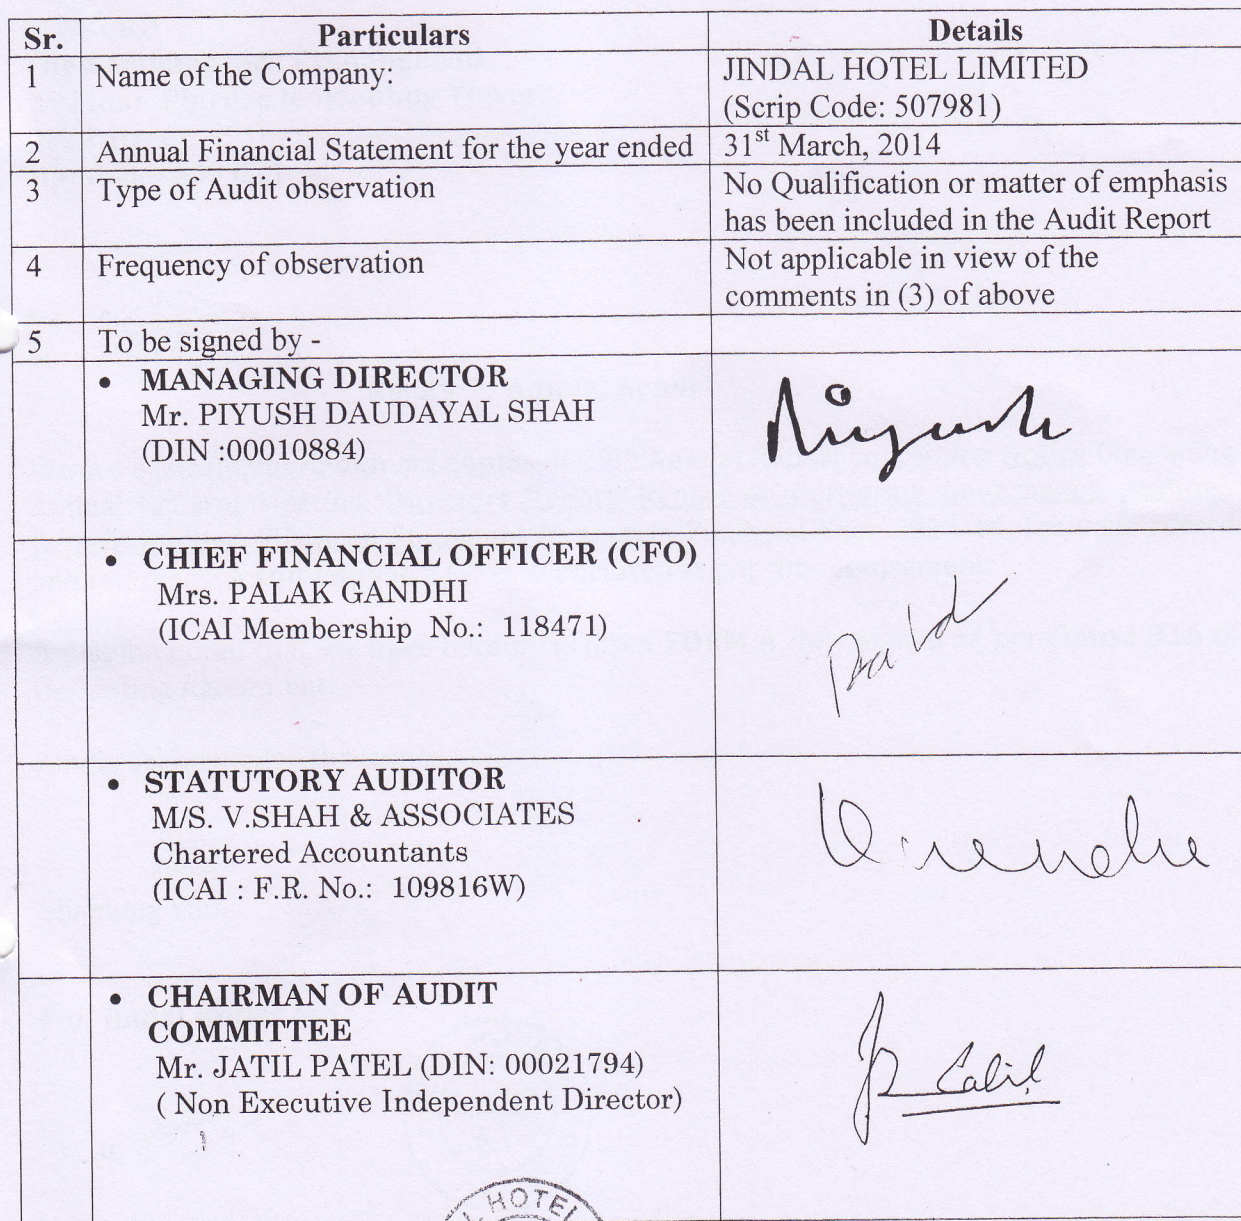 Sr. Particulars Details
1 Name of the Company: JINDAL HOTEL LIMITED
(Scrip Code: 507981)
2 Annual Financial Statement for the year ended 31st March, 2014
3 Type of Audit observation No Qualification or matter of emphasis
has been included in the Audit Report
4 Frequency of observation Not applicable in view of the
comments in (3) of above
5 To be signed by -
• MANAGING DIRECTOR
Mr. PIYUSH DAUDAYAL SHAH
(DIN :00010884)
Piyush
• CHIEF FINANCIAL OFFICER (CFO)
Mrs. PALAK GANDHI
(ICAI Membership No.: 118471)
• STATUTORY AUDITOR
M/S. V.SHAH & ASSOCIATES
Chartered Accountants
(ICAI : F.R. No.: 109816W)
• CHAIRMAN OF AUDIT
COMMITTEE
Mr. JATIL PATEL (DIN: 00021794)
( Non Executive Independent Director)
L HOTEL